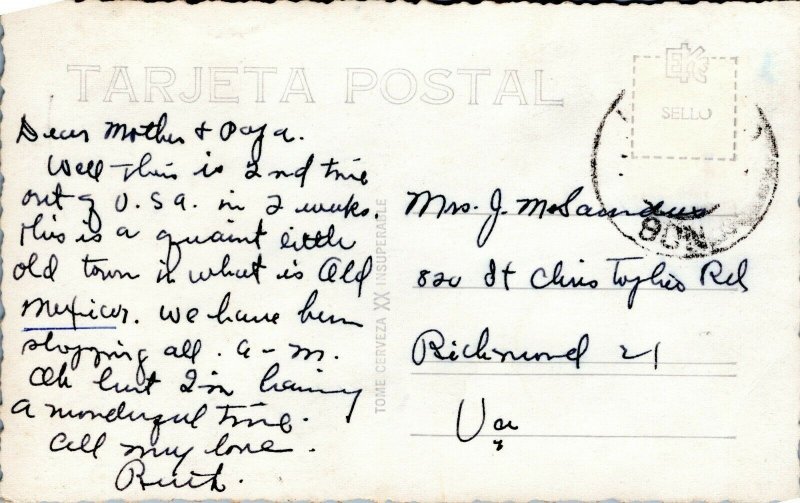 TARJETA POSTAL
EKC
SELLO
Dear Mother & Papa.
Well This is 2nd time
out of U.S.A. in 2 weeks.
This is a quaint little
old town in what is Old
Mexico. We have been
shopping all. a-m.
Oh but I'm having
a wonderful time.
All my love.
Ruth.
TOME CERVEZA XX INSUPERABLE
Mrs. J. M. Saunders
820 St Christophers Rd,
Richmond 21
Va